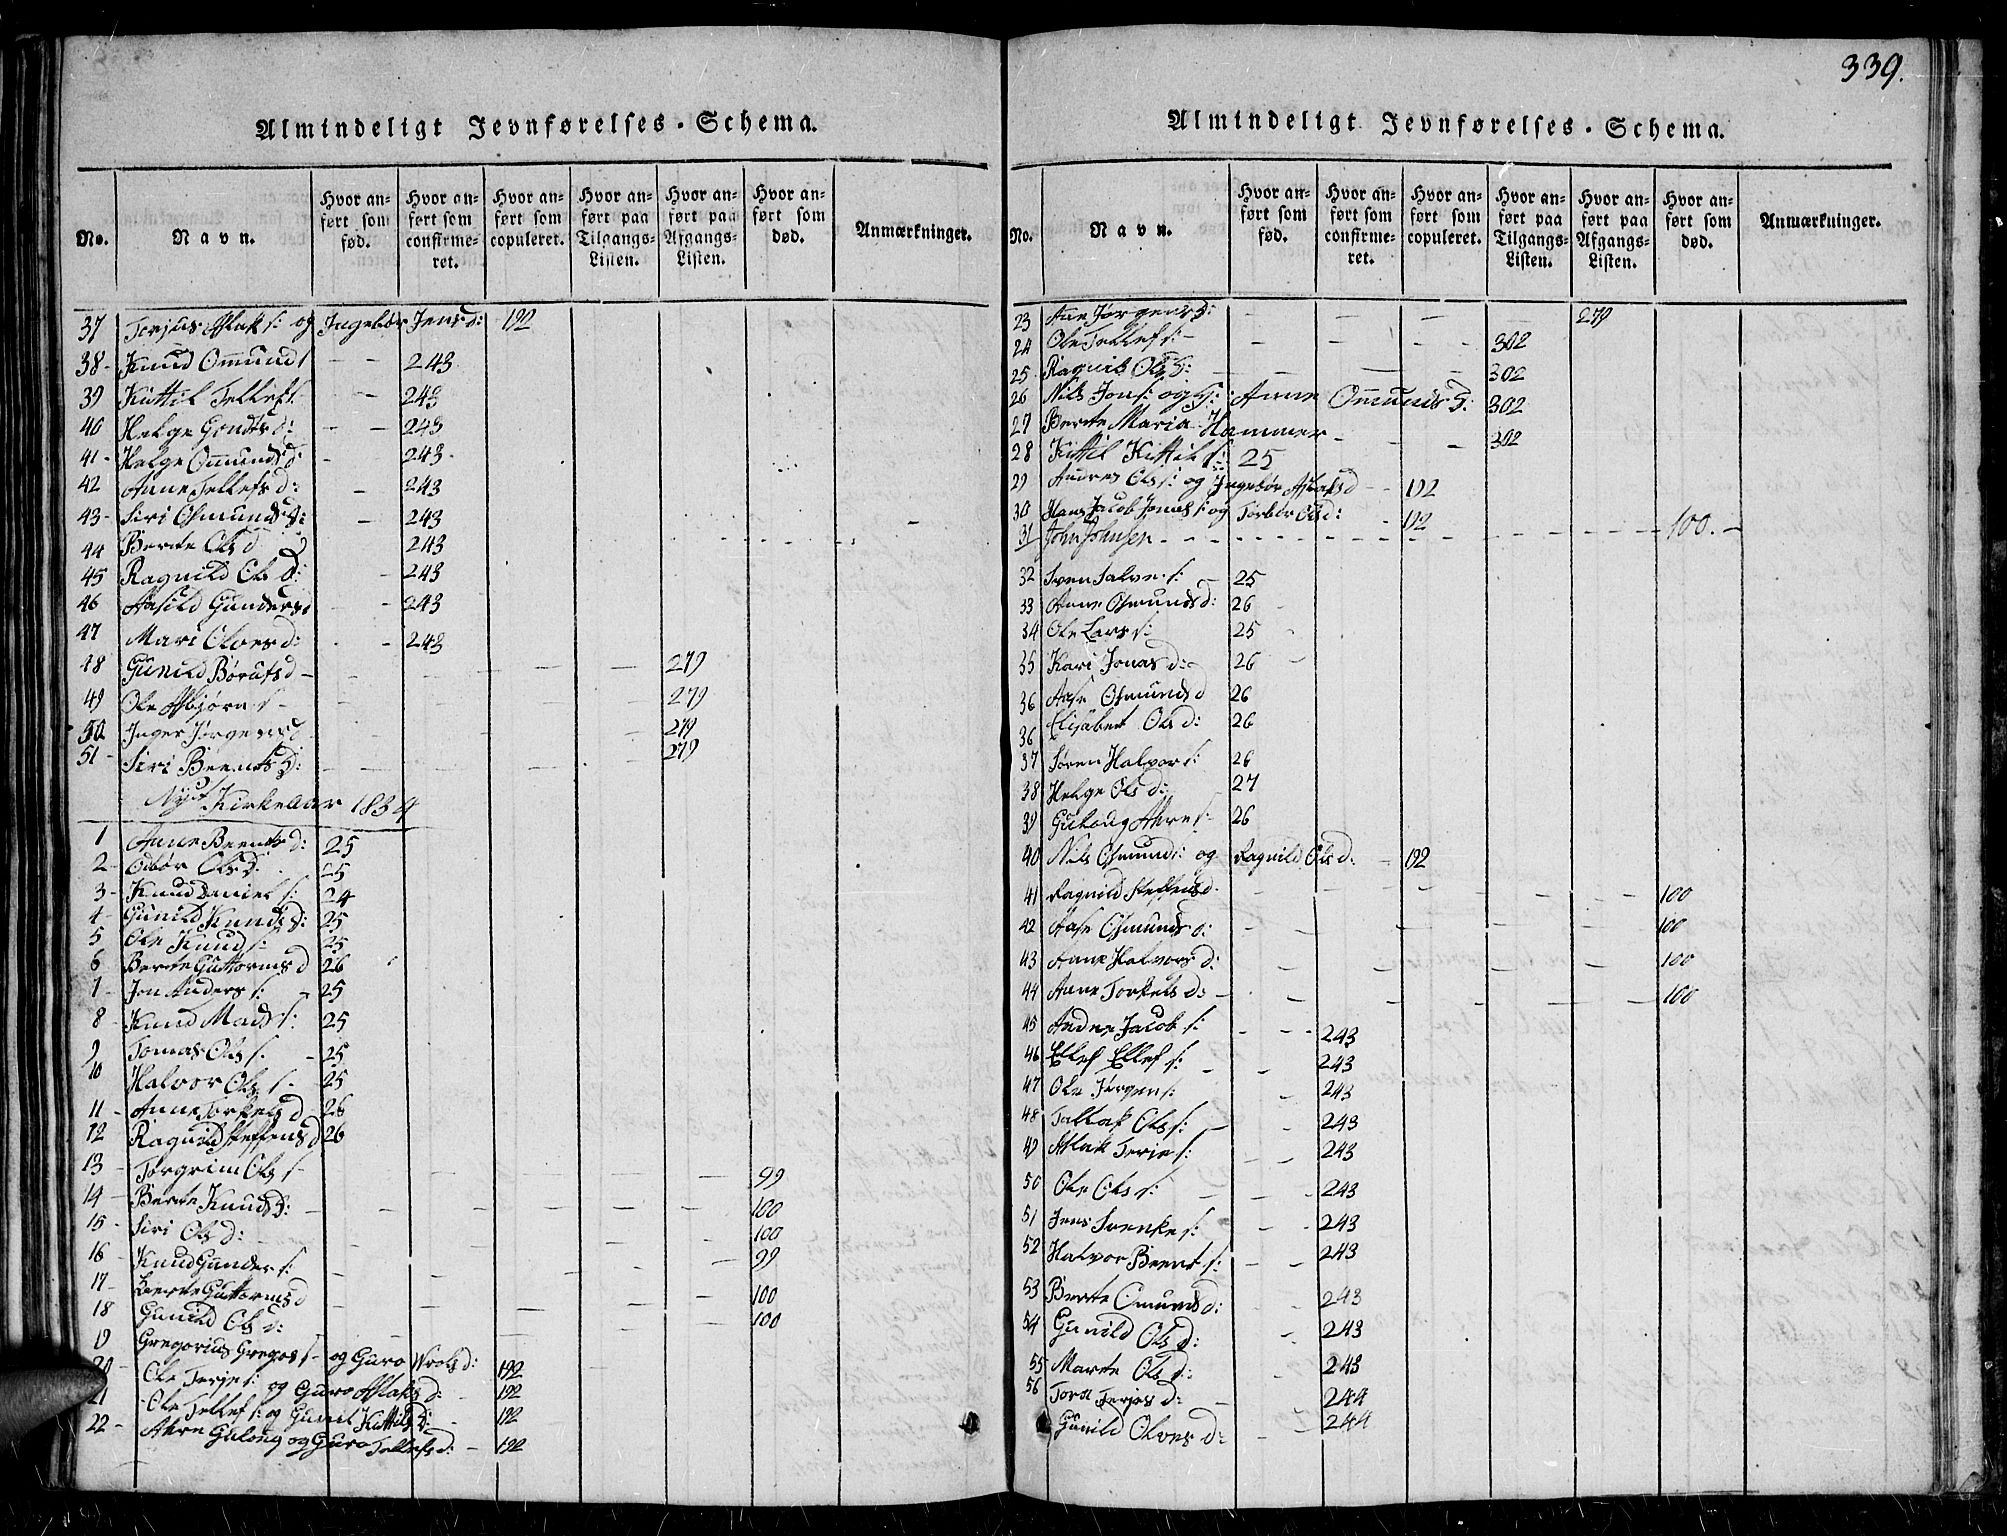 339.
Almindeligt Jevnførelses-Schema.
No. Navn. Hvor anført som fød. Hvor anført som confirmeret. Hvor anført som copuleret. Hvor anført paa Tilgangs-Listen. Hvor anført paa Afgangs-Listen. Hvor anført som død. Anmærkninger.
37 Terjus Aslak s: og Ingebør Jens d: 192
38 - Knud Omund s - - 243
39 Kittil Tellef s. - - 243
40 Helge Gondts d: - - 243
41 - Helge Omunds d: - 243 -
42 Anne Tellefs d: - 243
43 - Siri Osmunds d: - 243
44 Berte Ols d 243
45 Ragnild Ols d: - 243
46 Aasild Gunders d - - 243
47 Mari Olves d: - - 243
48 Gunild Børufs d - 279
49 Ole Asbjørn s - 279
50 Inger Jørgens d 279
51 - Siri Beents d: 279
Nyt Kirkeaar 1834
1 Anne Beents d: 25
2 - Odbør Ols d: 25
3 - Knud Daniel s: 24
4 - Gunild Knuds d: 25
5 Ole Knud s: 25
6 Berte Guttorms d 26
7 - Jon Anders s: - 25
8 - Knud Mads s: 25
9 Tomas Ols s: - 25
10 Halvor Ols s - 25
11 - Anne Torkels d 26
12 Ragnild Steffens d 26
13 - Torgrim Ols s - 99
14 - Berte Knuds d: 100
15 - Siri Ols d: 100
16 Knud Gunder s: 99
17 - Berte Guttorms d 100
18 Gunild Ols d: 100
19 Gregorius Gregos s - og Guro Wrols d: 192
20 Ole Terje s: og Guro Aslaks d: - 192
21 Ole Tellef s: og Gunil Kittils d: - 192
22 - Akre Gulong og Guro Tellefs d: - 192
Almindeligt Jevnførelses-Schema.
No. Navn. Hvor anført som fød. Hvor anført som confirmeret. Hvor anført som copuleret. Hvor anført paa Tilgangs-Listen. Hvor anført paa Afgangs-Listen. Hvor anført som død. Anmærkninger.
23 Ane Jørgens d: 279
24 Ole Tellef s: - 302
25 Ragnil Ols d: 302
26 Nils Jon s: og H: Anne Omunds d: 302
27 Berte Maria Hammer - 302
28 Kittil Kittil s: 25
29 Andres Ols s: og Ingebør Aslaks d - - 192
30 Hans Jacob Jonas s: og Torbør Ols d: - 192
31 John Johnsen - - - 100. -
32 Sven Salve s: - 25
33 Anne Osmunds d: 26
34 Ole Lars s: 25
35 Kari Jonas d: - 26
36 Aase Osmunds d 26
36 Elisabet Ols d: 26
37 Søren Halvor s: 26
38 Helge Ols d: 27
39 Gulong Akre s: 26
40 Nils Osmund s: og Ragnild Ols d: - 192
41 Ragnild Steffens d. 100
42 Aase Osmunds d: 100
43 Anne Halvors d: 100
44 Anne Torkels d: - 100
45 Andres Jacob s: - - - 243
46 Ellef Ellef s: - - 243
47 Ole Jørgen s: - 243
48 Tallak Ols s: - - 243
49 Aslak Terje s: 243
50 Ole Ols s: - - 243
51 Jens Svenke s: - - 243
52 Halvor Beent s: - - 243
53 Berte Omunds d: - 243
54 Gunild Ols d: - 243
55 Marte Ols d: 243
56 Tora Terjes d: - 244
Gunild Olves d: - 244